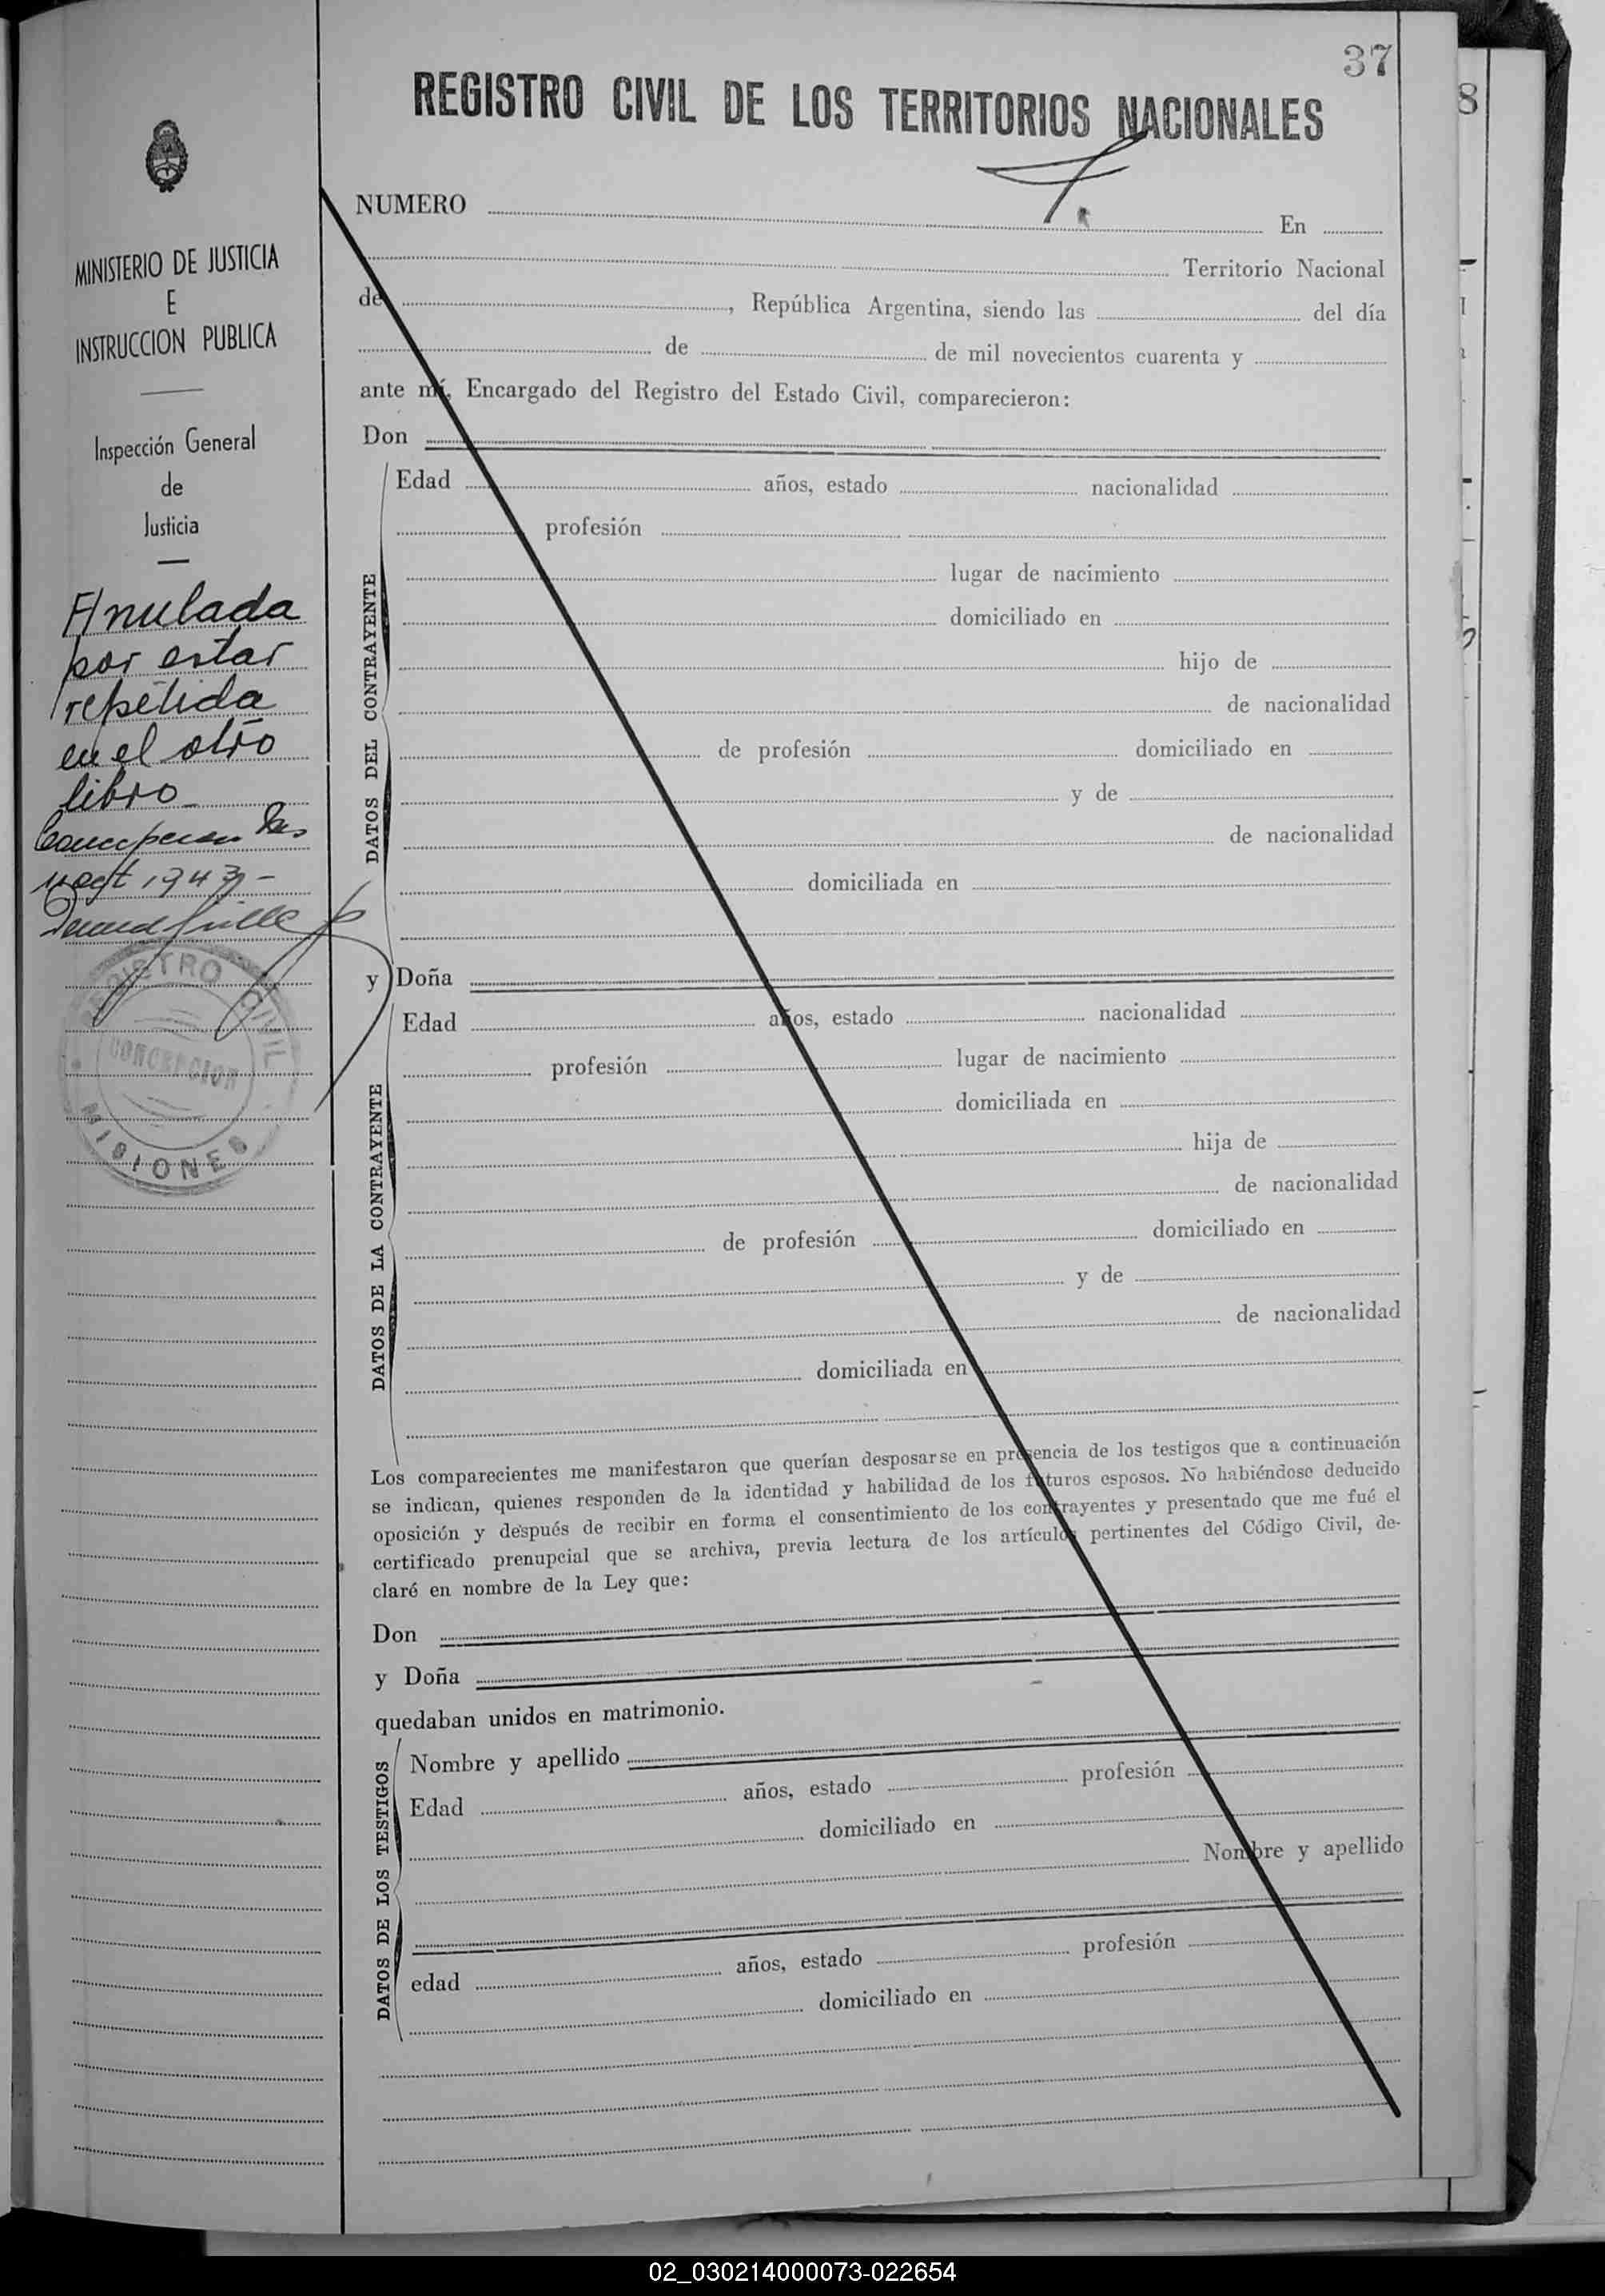 37
8
REGISTRO CIVIL DE LOS TERRITORIOS NACIONALES
MINISTERIO DE JUSTICIA
E
INSTRUCCION PUBLICA
Inspección General
de
Justicia
Anulada
por estar
repetida
en el otro
libro
1943
REGISTRO CIVIL
CONCEPCION
MISIONES
NUMERO En
Territorio Nacional
de , República Argentina, siendo las del día
de de mil novecientos cuarenta y
ante mí, Encargado del Registro del Estado Civil, comparecieron:
Don
DATOS DEL CONTRAYENTE
Edad años, estado nacionalidad
profesión
lugar de nacimiento
domiciliado en
hijo de
de nacionalidad
de profesión domiciliado en
y de
de nacionalidad
domiciliada en
y Doña
DATOS DE LA CONTRAYENTE
Edad años, estado nacionalidad
profesión lugar de nacimiento
domiciliada en
hija de
de nacionalidad
de profesión domiciliado en
y de
de nacionalidad
domiciliada en
Los comparecientes me manifestaron que querían desposarse en presencia de los testigos que a continuación
se indican, quienes responden de la identidad y habilidad de los futuros esposos. No habiéndose deducido
oposición y después de recibir en forma el consentimiento de los contrayentes y presentado que me fué el
certificado prenupcial que se archiva, previa lectura de los artículos pertinentes del Código Civil, de-
claré en nombre de la Ley que:
Don
y Doña
quedaban unidos en matrimonio.
DATOS DE LOS TESTIGOS
Nombre y apellido
Edad años, estado profesión
domiciliado en
Nombre y apellido
edad años, estado profesión
domiciliado en
02_030214000073-022654